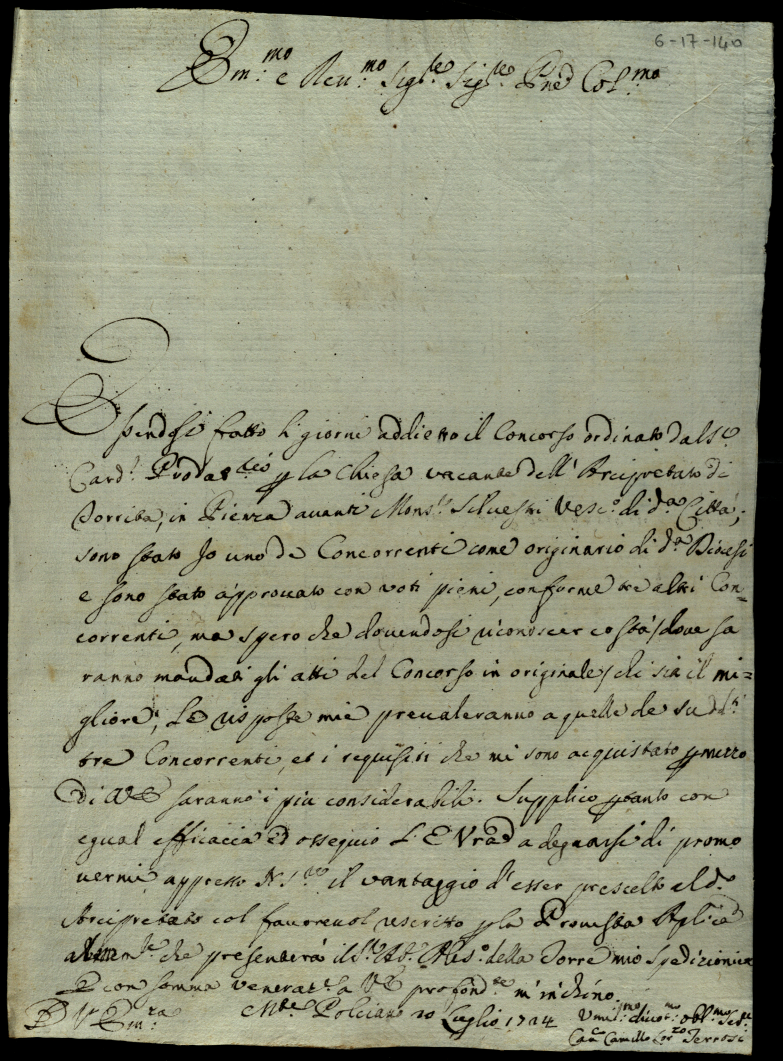 6-17-140
Em:mo e Reu:mo Sig.re Sig.re Pne Col:mo
Essendosi fatto li giorni addietro il Concorso ordinato dal Sr
Card.l Prodat.rio p la Chiesa vacante dell' Arcipretato di
Torrita, in Pienza auanti Mons.r Siluestri Vesc.o di d.a Città,
sono stato Io uno de Concorrenti come originario di d.a Diocesi
e sono stato approuato con voti pieni, conforme tre altri Con=
correnti, ma spero che douendosi riconoscer costà/doue sa
ranno mandati gli atti del Concorso in originale/chi sia il mi=
gliore, Le risposte mie preualeranno a quelle de sud.ti
tre Concorrenti, et i requisiti che mi sono acquistato p mezzo
di VE saranno i piu considerabili. Supplico ptanto con
egual efficacia ed ossequio L'E Vra a degnarsi di promo
uermi appresso N.S.re il vantaggio d'esser prescelto al d.o
Arcipretato col fauoreuol rescritto p la
che presenterà il Sr Ab.e Aless.o della Torre mio Spedizionie
E con somma venerat.e a VE profond.te m'inchino
D V Em:za M.te Pulciano 10 Luglio 1724 Umil:mo diuot:mo obl:mo Ser.re
Can.co Camillo Lor.zo Terrosi